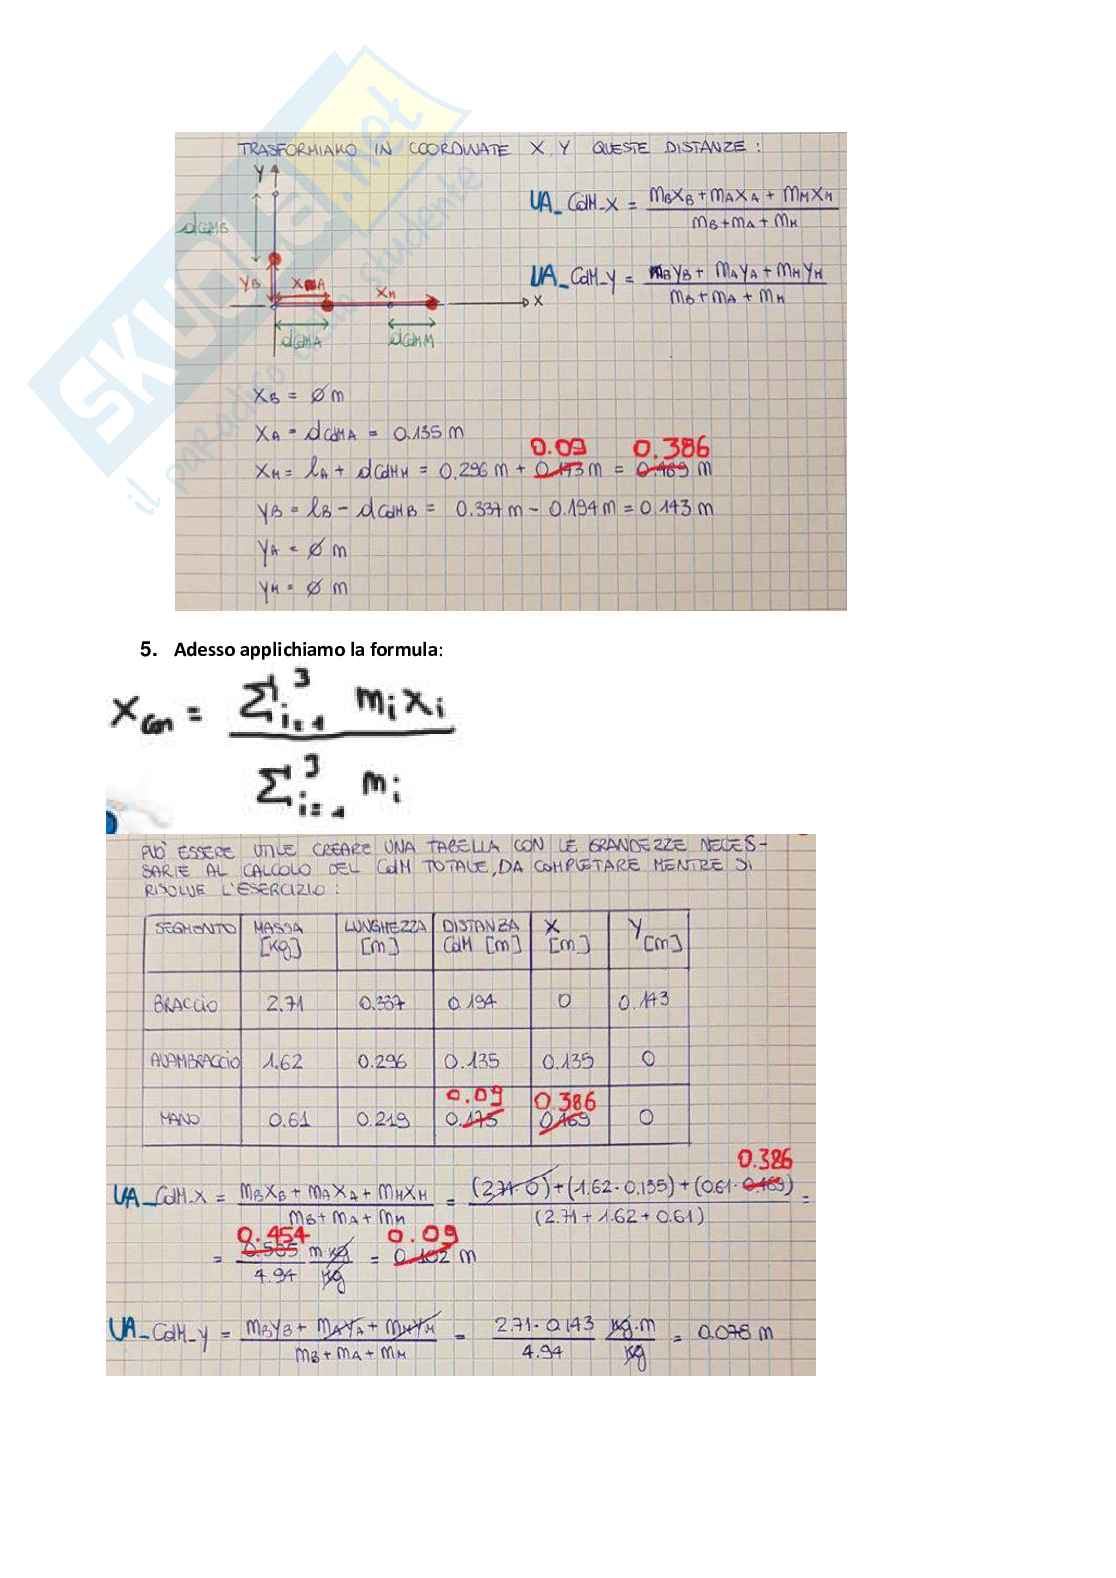 SKUOLA.net
il paradiso dello studente
TRASFORMIAMO IN COORDINATE X, Y QUESTE DISTANZE :
Y
UA_CdM_X = (mBXB + mAXA + mMXM) / (mB + mA + mM)
dCdMB
UA_CdM_Y = (mBYB + mAYA + mMYM) / (mB + mA + mM)
YB XA XM X
dCdMA dCdMM
XB = ∅ m
XA = dCdMA = 0.135 m
0.09 0.386
XM = lA + dCdMM = 0.296 m + 0.173 m = 0.469 m
YB = lB - dCdMB = 0.337 m - 0.194 m = 0.143 m
YA = ∅ m
YM = ∅ m
5. Adesso applichiamo la formula:
Xcom = Σi=1 3 mixi / Σi=1 3 mi
PUÒ ESSERE UTILE CREARE UNA TABELLA CON LE GRANDEZZE NECES-
SARIE AL CALCOLO DEL CdM TOTALE, DA COMPLETARE MENTRE SI
RISOLVE L'ESERCIZIO :
SEGMENTO MASSA [kg] LUNGHEZZA [m] DISTANZA CdM [m] X [m] Y [m]
BRACCIO 2.71 0.337 0.194 0 0.143
AVAMBRACCIO 1.62 0.296 0.135 0.135 0
0.09 0.386
MANO 0.61 0.219 0.173 0.469 0
0.386
UA_CdM_X = (mBXB + mAXA + mMXM) / (mB + mA + mM) = ((2.71·0) + (1.62·0.135) + (0.61·0.469)) / (2.71 + 1.62 + 0.61) =
0.454 0.09
= 0.505 / 4.94 m kg / kg = 0.102 m
UA_CdM_Y = (mBYB + mAYA + mMYM) / (mB + mA + mM) = 2.71·0.143 / 4.94 kg·m / kg = 0.078 m